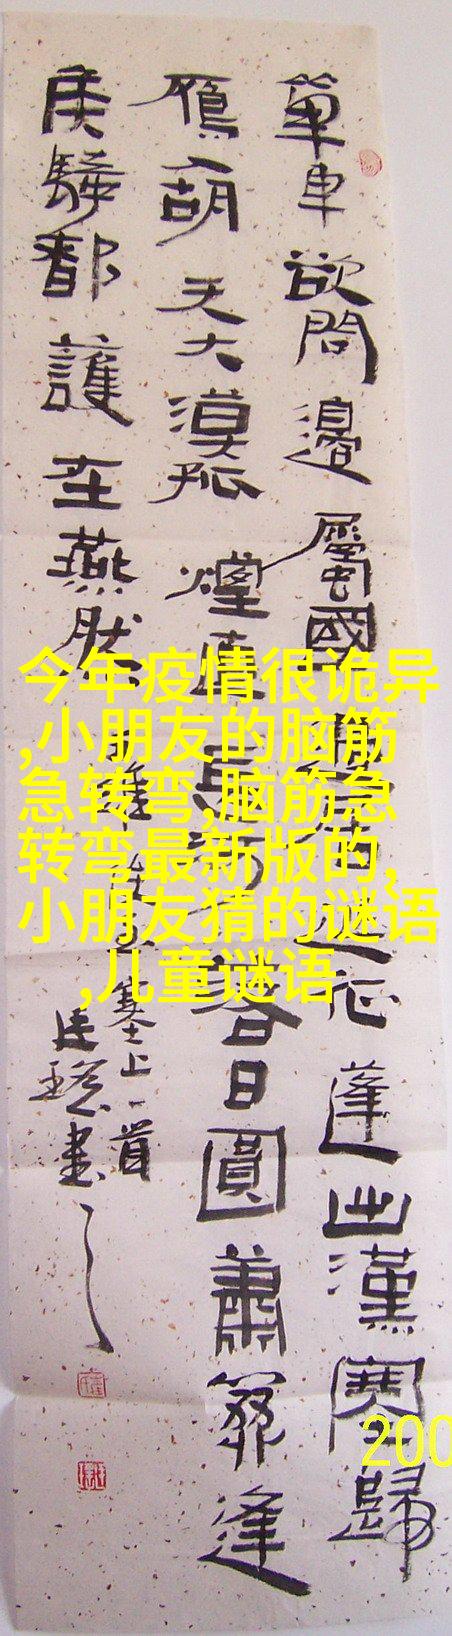 單車欲問邊屬國居延征蓬出漢塞歸
鴈入胡天大漠孤煙直長河落日圓蕭關逢
候騎都護在燕然
王維使至塞上一首
書
今年疫情很诡异
,小朋友的脑筋
急转弯,脑筋急
转弯最新版的,
小朋友猜的谜语
,儿童谜语
200